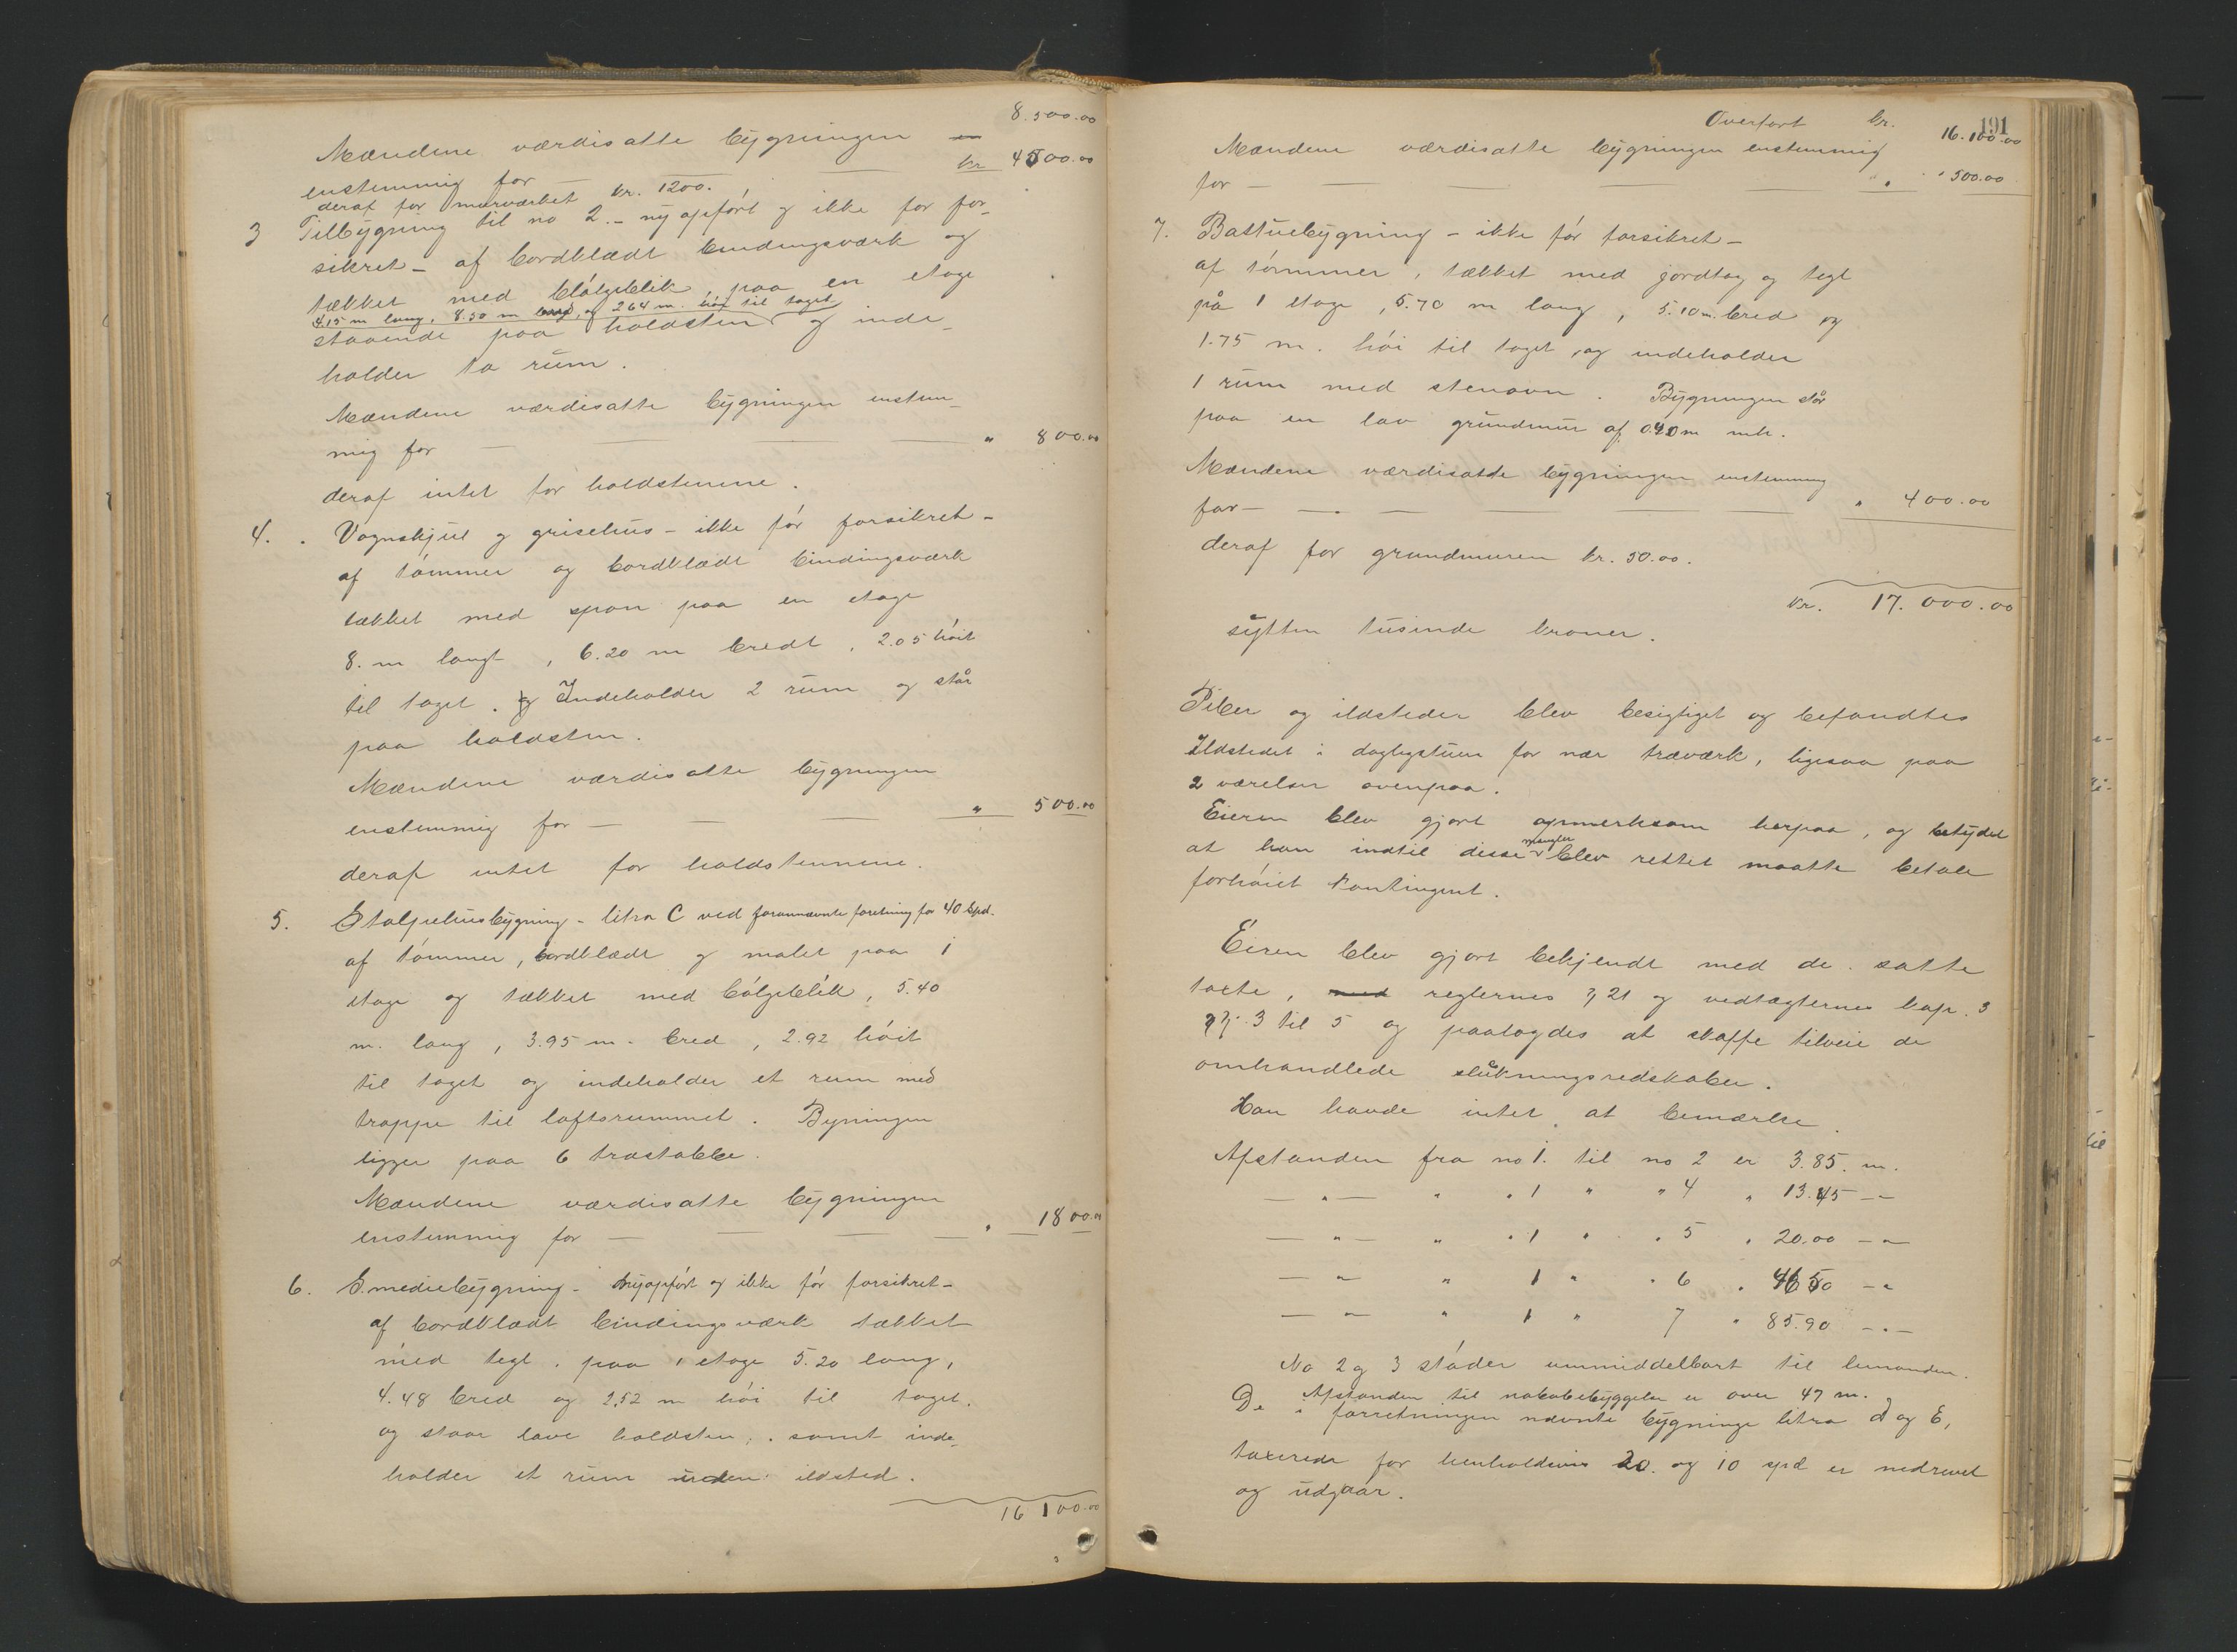 8.500.00
Mændene værdisatte bygningen
enstemmig for — — kr 4500.00
deraf for murværket kr. 1200.
3 Tilbygning til no 2 – ny opført og ikke før for-
sikret – af bordklædt bindingsværk og
tækket med bølgeblik, paa en etage
4.15 m lang, 8.50 m bred, og 2.64 m. høi til taget
staaende paa holdsten og inde-
holder to rum.
Mændene værdisatte bygningen enstem-
mig for — — — " 800.00
deraf intet for holdstenene.
4. Vognskjul og grisehus – ikke før forsikret –
af tømmer og bordklædt bindingsværk
tækket med spon paa en etage
8. m langt, 6.20 m bredt, 2.05 høit
til taget. Indeholder 2 rum og står
paa holdsten.
Mændene værdisatte bygningen
enstemmig for — — — " 500.00
deraf intet for holdstennene.
5. Stolpehusbygning – litra C ved forannævnte forretning for 40 spd.
af tømmer, bordklædt og malet paa 1
etage og tækket med bølgeblik, 5.40
m. lang, 3.95 m. bred, 2.92 høit
til taget og indeholder et rum med
trappe til loftsrummet. Byningen
ligger paa 6 træstabber.
Mændene værdisatte bygningen
enstemmig for — — — " 1800.00
6. Smediebygning – nyopført og ikke før forsikret –
af bordklædt bindingsværk tækket
med tegl. paa 1 etage 5.20 lang,
4.48 bred og 2.52 m høi til taget.
og staar lave holdsten, samt inde-
holder et rum uden ildsted.
16 100.00
191
Overført kr. 16.100.00
Mændene værdisatte bygningen enstemmig
for — — — — " 500.00
7. Bastuebygning – ikke før forsikret –
af tømmer, tækket med jordtag og tegl
på 1 etage, 5.70 m lang, 5.10 m. bred og
1.75 m. høi til taget, og indeholder
1 rum med stenovn. Bygningen står
paa en lav grundmur af 0.40 m mk.
Mændene værdisatde bygningen enstemmig
for — — — — " 400.00
deraf for grundmuren kr. 50.00.
kr. 17.000.00
sytten tusinde kroner.
Piber og ildsteder blev besigtiget og befandtes
Ildstedet i dagligstuen for nær træværk, ligesaa paa
2 værelser ovenpaa.
Eieren blev gjort opmerksom herpaa, og betydet
at han indtil disse mangler blev rettet maatte betale
forhøiet kontingent.
Eieren blev gjort bekjendt med de satte
taxte, med reglernes § 21 og vedtægternes kap. 3
§§. 3 til 5 og paalagdes at skaffe tilveie de
omhandlede slukningsredskaber.
Han havde intet at bemærke.
Afstanden fra no 1. til no 2 er 3.85. m.
— " — " " 1 " " 4 " 13.45 — "
— " — " " 1 " " 5 " 20.00 — "
— " — " 1 " " 6 " 46.50 — "
— " — " 1 " 7 " 85.90 — " —
No 2 og 3 støder ummiddelbart til hinanden.
Afstanden til nabobebyggelse er over 47 m.
De i forretningen nævnte bygninge litra d og E,
taxerede for henholdsvis 20. og 10 spd er nedrevet
og udgaar.